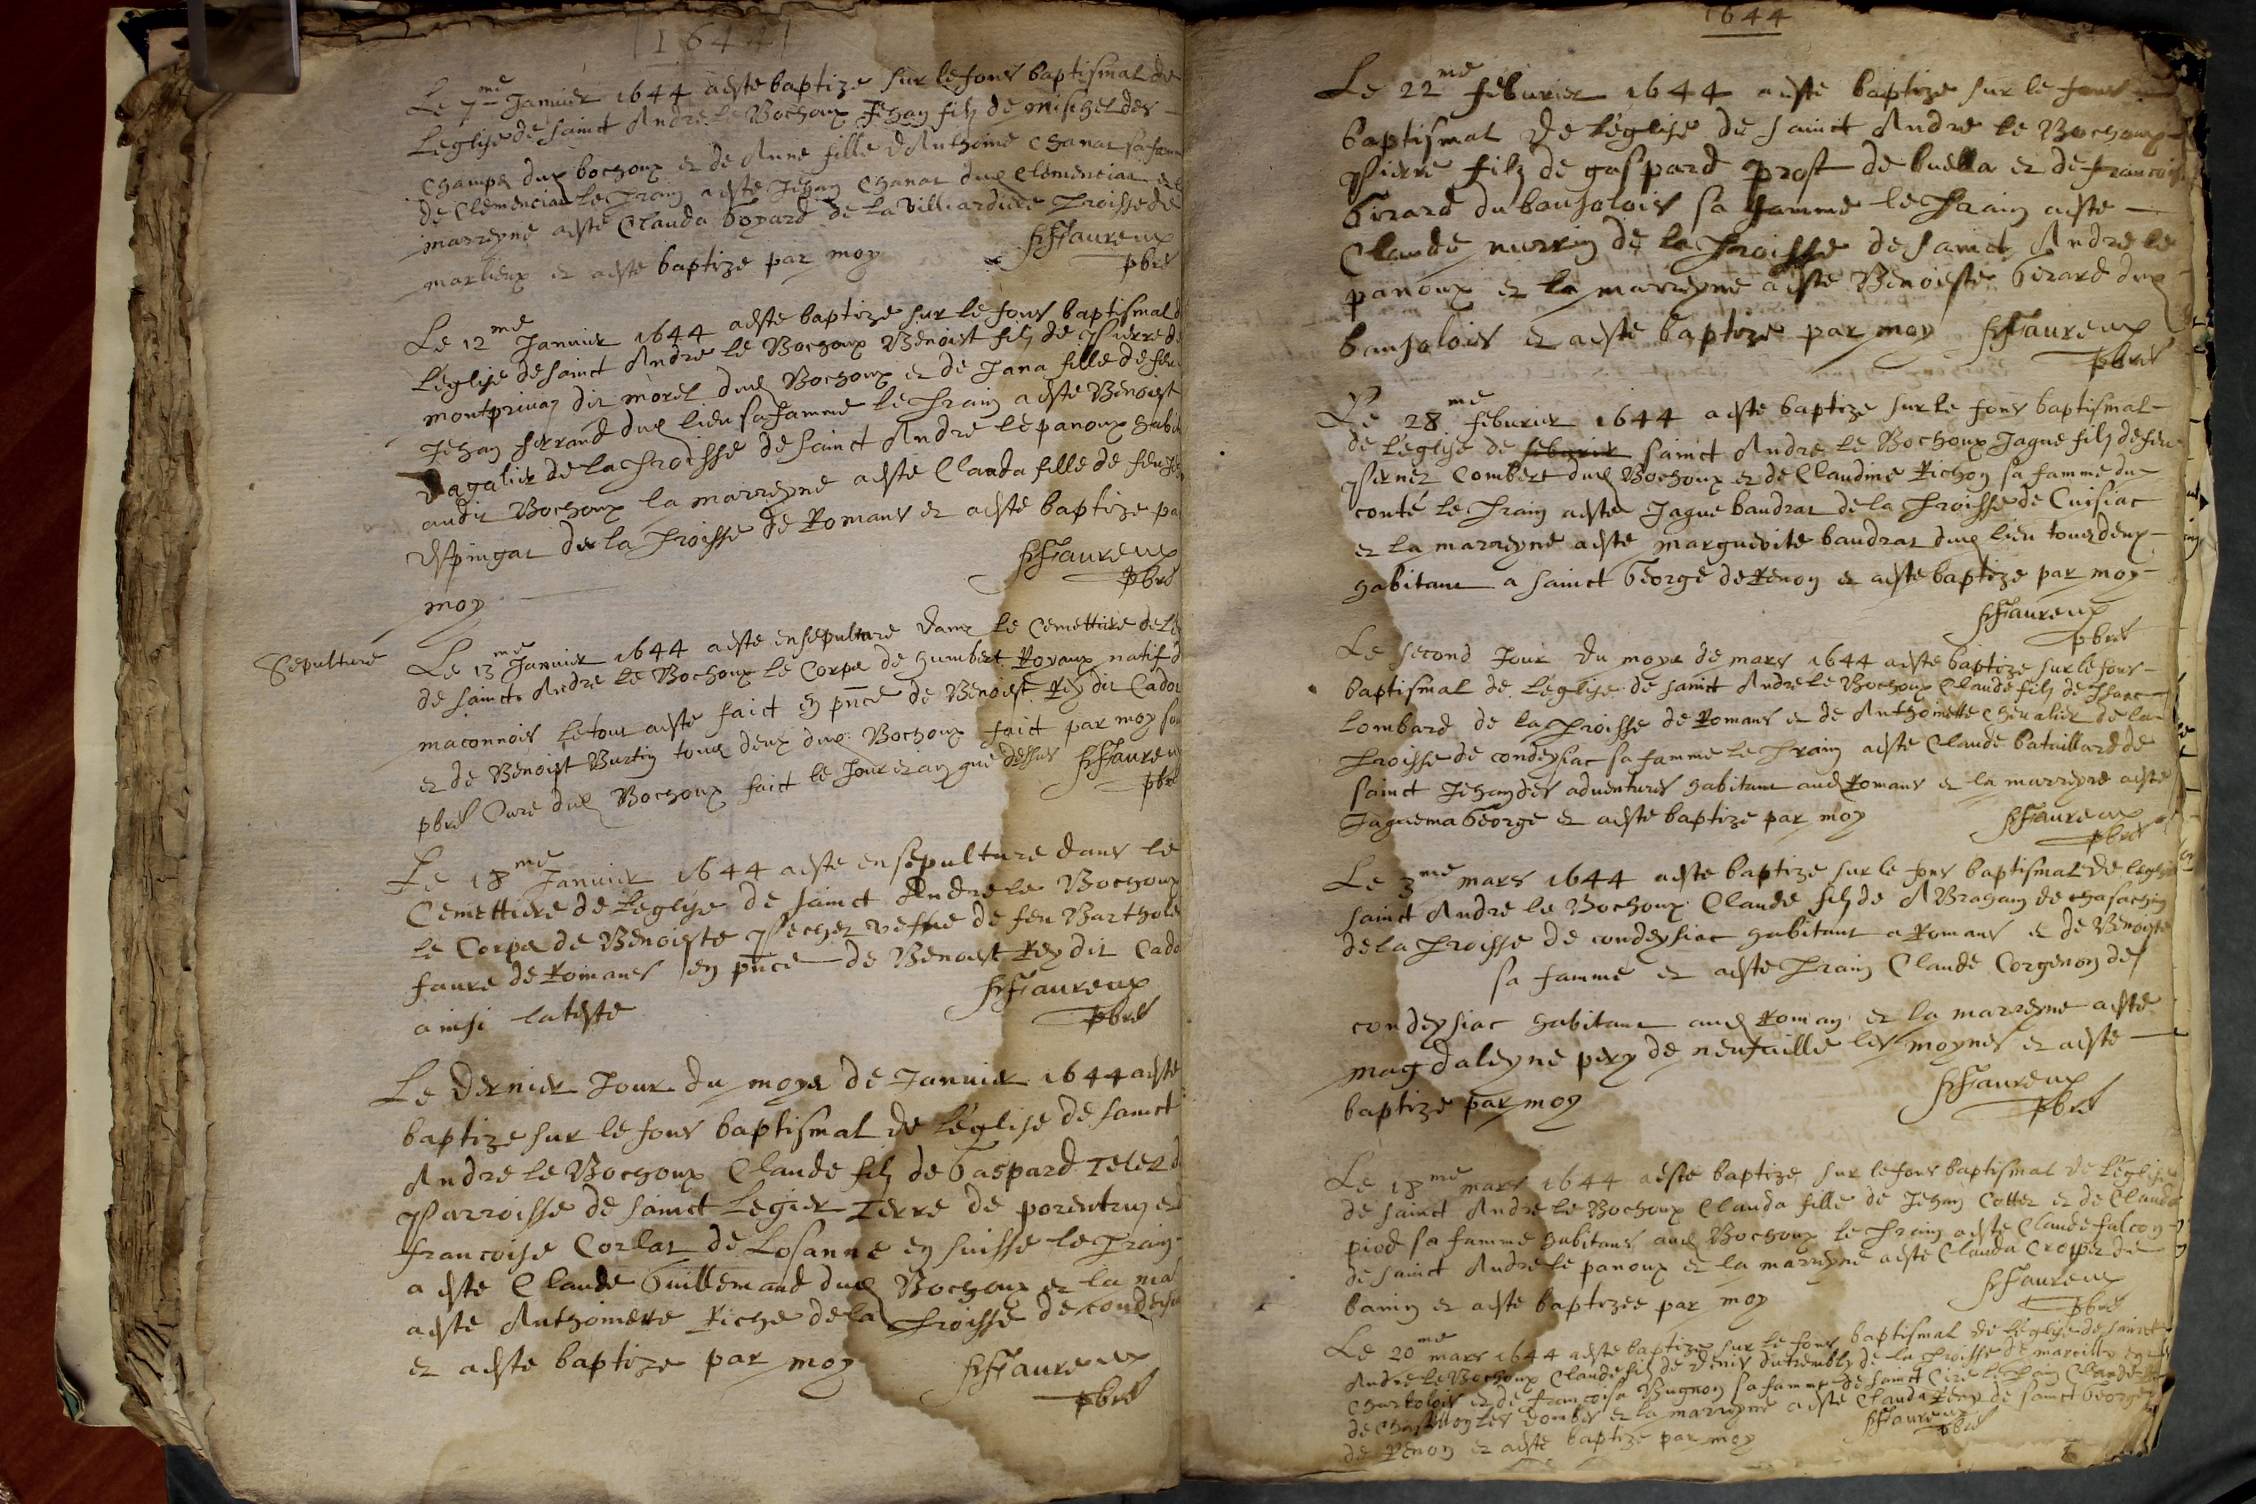 1644
Le 7me Januier 1644 aeste baptize sur le fons baptismal de
Leglise de sainct Andre le Bochoux Jehan filz de mischel des
champs dud bochoux et de Anne fille dAnthoine Chanat sa famme
de Clemenciat le Prain aeste Jehan Chanat dud Clemenciat et
marreyne aeste Clauda boyard de la Villiardiere Proisse de
marlieux et aeste baptize par moy
Faureux
pbre
Le 12me Januier 1644 aeste baptize sur le fons baptismal d
Leglise de sainct Andre le Bochoux Benoist filz de Pierre de
montpriuaz dit morel dud Bochoux et de Jana fille de feu
Jehan ferrand dud lieu sa famme le Prain aeste Benoist
Vagalier de la Proisse de sainct Andre le panoux habit
audit Bochoux la marreyne aeste Clauda fille de feu
despingat de la Proisse de Romans et aeste baptize pa
moy
Faureux
pbre
Sepulture
Le 13me Januier 1644 aeste ensepulture dans le Cemettiere de
de sainct Andre le Bochoux le Corps de humbert Royaux natif d
maconnois le tout aeste faict en pnce de Benoist Rey dit Cador
et de Benoist Burtin tous deux dud Bochoux faict par moy
pbre Cure dud Bochoux faict le Jour et an que dessus Faureux
pbre
Le 18me Januier 1644 aeste ensepulture dans le
Cemettiere de leglise de sainct Andre le Bochoux
le Corps de Benoiste Pechet vefue de feu Barthole
faure de Romans en pnce de Benoist Rey dit Cado
ainsi lateste
Faureux
pbre
Le dernier Jour du moys de Januier 1644 aeste
baptize sur le fons baptismal de leglise de sainct
Andre le Bochoux Claude filz de Gaspard Telet d
Parroisse de sainct Legier Terre de porentruy et
francoise Corlat de Losanne en suisse le Prain
aeste Claude Guillemaud dud Bochoux et la ma
aeste Anthoinette Riche de la Proisse de condeisia
et aeste baptize par moy
Faureux
pbre
1644
Le 22me feburier 1644 aeste baptize sur le fons
baptismal de leglise de sainct Andre le Bochoux
Pierre filz de gaspard Prost de buella et de francoise
Gerard du baujolois sa famme le Prain aeste
Claude murrin de la Proisse de sainct Andre le
panoux et la marreyne aeste Benoiste Gerard dud
baujolois et aeste baptize par moy
Faureux
pbre
Le 28me feburier 1644 aeste baptize sur le fons baptismal
de leglise de sainct Andre le Bochoux Jaque filz de feu
Pernet Combert dud Bochoux et de Claudine Richon sa famme du
conté le Prain aeste Jaque baudrat de la Proisse de Cuisiat
et la marreyne aeste marguerite baudrat dud lieu tous deux
habitant a sainct George de Renon et aeste baptize par moy
Faureux
pbre
Le second Jour du moys de mars 1644 aeste baptize sur le fons
baptismal de leglise de sainct Andre le Bochoux Claude filz de Isaac
Lombard de la Proisse de Romans et de Anthoinette Cheualier de la
Proisse de condeysiac sa famme le Prain aeste Claude bataillard de
sainct Jehan des aduentures habitant aud Romans et la marreyne aeste
Jaquema George et aeste baptize par moy
Faureux
pbre
Le 3me mars 1644 aeste baptize sur le fons baptismal de leglise
sainct Andre le Bochoux Claude filz de Abraham de chasachin
de la Proisse de condeysiac habitant a Romans et de Benoyte
sa famme et aeste Prain Claude Corgenon de
condeysiac habitant aud Roman et la marreyne aeste
magdaleyne pery de neufuille les moynes et aeste
baptize par moy
Faureux
pbre
Le 18me mars 1644 aeste baptize sur le fons baptismal de leglise
de sainct Andre le Bochoux Clauda fille de Jehan Cottet et de Clauda
piod sa famme habitans aud Bochoux le Prain aeste Claude falcon
de sainct Andre le panoux et la marreyne aeste Clauda Croppet de
banin et aeste baptizee par moy
Faureux
pbre
Le 20me mars 1644 aeste baptize sur le fons baptismal de leglise de sainct
Andre le Bochoux Claude filz de Denis dutrembly de la Proisse de marcilly en
Charolois et de francoisa Bugnon sa famme de sainct Cire le Prain Claude
de Chastillon les dombes et la marreyne aeste Clauda Reuy de sainct George
de Renon et aeste baptize par moy
Faureux
pbre